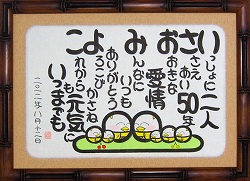 いっしょに二人
ささえあい50年
おおきな愛情
みんなに
いつも
ありがとう
よろこびかさね
これからも元気に
いつまでも
二〇二二年八月十二日